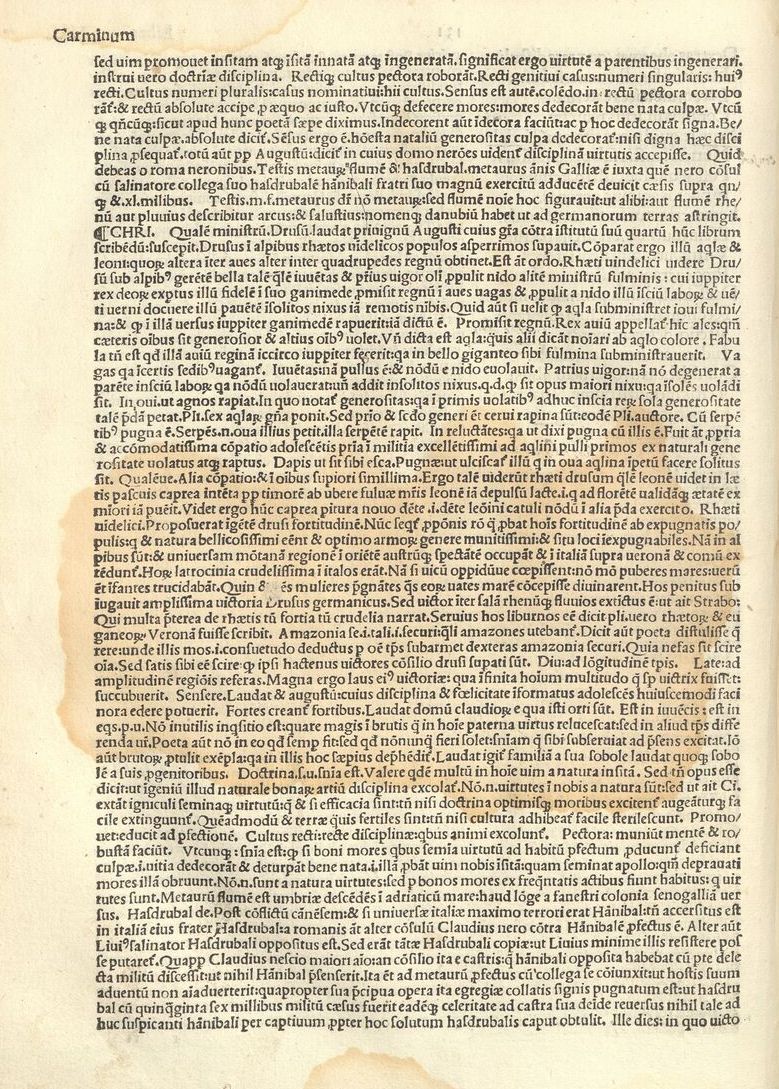 Carminum
sed uim promouet insitam atqꝫ ĩsitã innatã atqꝫ ĩngeneratã. significat ergo uirtutẽ a parentibus ingenerari.
instrui uero doctrĩæ disciplina. Rectiqꝫ cultus pectora roborãt. Recti genitiui casus: numeri singularis: huiꝰ
recti. Cultus numeri pluralis: casus nominatiui: hii cultus. Sensus est autẽ. colẽdo. in rectũ pectora corrobo
rãt: & rectũ absolute accipe ꝓ æquo ac iusto. Vtcũqꝫ defecere mores: mores dedecorãt bene nata culpæ. Vtcũ
qꝫ qñcũqꝫ: sicut apud hunc poetã sæpe diximus. Indecorent aũt ĩdecora faciũt: ac p hoc dedecorãt signa. Be/
ne nata culpæ. absolute dicit. Sẽsus ergo ẽ. hõesta nataliũ generositas culpa dedecorat: nisi digna hæc disci
plina ꝓsequat. totũ aũt pp Augustũ: dicit in cuius domo nerões uident disciplinã uirtutis accepisse. Quid
debeas o roma neronibus. Testis metaurꝫ flumẽ & hasdrubal. metaurus ãnis Galliæ ẽ iuxta quẽ nero cõsul
cũ salinatore collega suo hasdrubalẽ hãnibali fratri suo magnũ exercitũ adducẽtẽ deuicit cæsis supra qn/
qꝫ & .xl. milibus. Testis. m. f. metaurus dr̃ nõ metaurꝫ: sed flumẽ noĩe hoc figurauit: ut alibi: aut flumẽ rhe/
nũ aut pluuius describitur arcus: & salustius: nomenqꝫ danubiũ habet ut ad germanorum terras astringit.
¶CHRI. Qualẽ ministrũ. Drusũ. laudat priuignũ Augusti cuius gr̃a cõtra ĩstitutũ suũ quartũ hũc librum
scribẽdũ: suscepit. Drusus ĩ alpibus rhætos uĩdelicos populos asperrimos supauit. Cõparat ergo illũ aqlæ &
leoni: quorꝫ altera ĩter aues alter inter quadrupedes regnũ obtinet. Est ãt ordo. Rhæti uindelici uidere Dru/
sũ sub alpibꝰ gerẽtẽ bella talẽ q̃lẽ iuuẽtas & pr̃ius uigor olĩ ꝓpulit nido alitẽ ministrũ fulminis: cui iuppiter
rex deorꝫ exptus illũ fidelẽ ĩ suo ganimede ꝓmisit regnũ ĩ aues uagas & ꝓpulit a nido illũ ĩsciũ laborꝫ & uẽ/
ti uerni docuere illũ pauẽtẽ ĩsolitos nixus iã remotis nibis. Quid aũt si uelit qꝫ aqla subministret ioui fulmi/
na: & qꝫ ĩ illã uersus iuppiter ganimedẽ rapuerit: iã dictũ ẽ. Promisit regnũ. Rex auiũ appellat hic ales: qm̃
cæteris oĩbus sit generosior & altius oĩbꝰ uolet. Vñ dicta est aqla: quis alii dicãt noĩari ab aqlo colore. Fabu
la tñ est qd illã auiũ reginã iccirco iuppiter fecerit: qa in bello giganteo sibi fulmina subministrauerit. Va
gas qa ĩcertis sedibꝰ uagant. Iuuẽtas: nã pullus ẽ: & nõdũ e nido euolauit. Patrius uigor: nã nõ degenerat a
parẽte insciũ laborꝫ qa nõdũ uolauerat: uñ addit insolitos nixus. q. d. qꝫ sit opus maiori nixu: qa ĩsolẽs uolãdi
sit. In oui. ut agnos rapiat. In quo notat generositas: qa ĩ primis uolatibꝰ adhuc inscia rerꝫ sola generositate
talẽ p̃dã petat. Pli. sex aqlarꝫ gña ponit. Sed prio & scdo generi ẽt cerui rapina sũt: eodẽ Pli. auctore. Cũ serpẽ
tibꝰ pugna ẽ. Serpẽs. n. oua illius petit. illa serpẽtẽ rapit. In reluctãtes: qa ut dixi pugna cũ illis ẽ. Fuit ãt ꝓpria
& accõmodatissima cõpatio adolescẽtis pria ĩ militia excellẽtissimi ad aqlini pulli primos ex naturali gene
rositate uolatus atqꝫ raptus. Dapis ut sit sibi esca. Pugnæ: ut ulciscat illũ q in oua aqlina ĩpetũ facere solitus
sit. Qualẽue. Alia cõpatio: & ĩ oĩbus supiori simillima. Ergo talẽ uiderũt rhæti drusum q̃lẽ leonẽ uidet in læ
tis pascuis caprea intẽta pp timorẽ ab ubere fuluæ mr̃is leonẽ iã depulsũ lacte. i. q ad florẽtẽ ualidãqꝫ ætatẽ ex
mĩori iã puẽit. Videt ergo hũc caprea pitura nouo dẽte. i. dẽte leõini catuli nõdũ ĩ alia p̃da exercito. Rhæti
uidelici. Proposuerat ĩgẽtẽ drusi fortitudinẽ. Nũc seqt ꝓpõnis rõ q ꝓbat hoĩs fortitudinẽ ab expugnatis po/
pulis: q & natura bellicosissimi eẽnt & optimo armorꝫ genere munitissimi: & situ loci ĩexpugnabiles. Nã in al
pibus sũt: & uniuersam mõtanã regionẽ ĩ oriẽtẽ austrũqꝫ spectãtẽ occupãt & ĩ italiã supra ueronã & comũ ex
rẽdunt. Horꝫ latrocinia crudelissima ĩ italos erãt. Nã si uicũ oppidũue cœpissent: nõ mõ puberes mares: uerũ
ẽt ĩfantes trucidabãt. Quin & es mulieres p̃gnãtes qs eorꝫ uates marẽ cõcepisse diuinarent. Hos penitus sub
iugauit amplissima uictoria Drusus germanicus. Sed uictor ĩter salã rhenũqꝫ fluuios extĩctus ẽ: ut ait Strabo:
Qui multa p̃terea de rhætis tũ fortia tũ crudelia narrat. Seruius hos liburnos eẽ dicit pli. uero rhætorꝫ & eu
ganeorꝫ Veronã fuisse scribit. Amazonia se. i. tali. i. securi: q̃li amazones utebant. Dicit aũt poeta distulisse q̃
rere: unde illis mos. i. consuetudo deductus p oẽ tp̃s subarmet dexteras amazonia securi. Quia nefas sit scire
oĩa. Sed satis sibi eẽ scire qꝫ ipsi hactenus uictores cõsilio drusi supati sũt. Diu: ad lõgitudinẽ tpis. Late: ad
amplitudinẽ regiõis referas. Magna ergo laus eiꝰ uictoriæ: qua ĩfinita hoĩum multitudo q̃ sp uictrix fuisset:
succubuerit. Sensere. Laudat & augustũ: cuius disciplina & fœlicitate ĩformatus adolescẽs huiuscemodi faci
nora edere potuerit. Fortes creant fortibus. Laudat domũ claudiorꝫ e qua isti orti sũt. Est in iuuẽcis: est in
eqs. p. u. Nõ inutilis inqsitio est: quare magis ĩ brutis q̃ in hoĩe paterna uirtus relucescat: sed in aliud tp̃s diffe
renda ui. Poeta aũt nõ in eo qd semp fit: sed qd nõnunq̃ fieri solet: sniam q̃ sibi subseruiat ad p̃sens excitat. Iõ
aũt brutorꝫ ꝓtulit exẽpla: qa in illis hoc sæpius dephẽdit. Laudat igit familiã a sua sobole laudat quoqꝫ sobo
lẽ a suis ꝓgenitoribus. Doctrina. s. u. snia est. Valere qdẽ multũ in hoĩe uim a natura insitã. Sed tñ opus esse
dicit: ut ĩgeniũ illud naturale bonarꝫ artiũ disciplina excolat. Nõ. n. uirtutes ĩ nobis a natura sũt: sed ut ait Ci.
extãt igniculi seminaqꝫ uirtutũ: q̃ & si efficacia sint: tñ nisi doctrina optimisqꝫ moribus excitent augeãturqꝫ fa
cile extingunt. Quẽadmodũ & terræ quis fertiles sint: tñ nisi cultura adhibeat facile sterilescunt. Promo/
uet: educit ad pfectionẽ. Cultus recti: recte disciplinæ: qbus animi excolunt. Pectora: muniũt mentẽ & ro/
bustã faciũt. Vtcunqꝫ: snia est: qꝫ si boni mores qbus semia uirtutũ ad habitũ pfectum ꝓducunt deficiant
culpæ. i. uitia dedecorãt & deturpãt bene nata. i. illã ꝓbãt uim nobis ĩsitã: quam seminat apollo: qm̃ deprauati
mores illã obruunt. Nõ. n. sunt a natura uirtutes: sed p bonos mores ex freqntatis actibus fiunt habitus: q uir
tutes sunt. Metaurũ flumẽ est umbriæ descẽdẽs ĩ adriaticũ mare: haud lõge a fanestri colonia senogalliã uer
sus. Hasdrubal de. Post cõflictũ cãnẽsem: & si uniuersæ italiæ maximo terrori erat Hãnibal: tñ accersitus est
in italiã eius frater Hasdrubal: a romanis ãt alter cõsulũ Claudius nero cõtra Hãnibalẽ ꝓfectus ẽ. Alter aũt
Liuiꝰ salinator Hasdrubali oppositus est. Sed erãt tãtæ Hasdrubali copiæ: ut Liuius minime illis resistere pos
se putaret. Quapp Claudius nescio maiori aĩo: an cõsilio ita e castris: q̃ hãnibali opposita habebat cũ pte dele
cta militũ discessit: ut nihil Hãnibal p̃senserit. Ita ẽt ad metaurũ ꝓfectus cũ collega se cõiunxit: ut hostis suum
aduentũ non aĩaduerterit: quapropter sua p̃cipua opera ita egregiæ collatis signis pugnatum est: ut hasdru
bal cũ quinq̃ginta sex millibus militũ cæsus fuerit eadẽqꝫ celeritate ad castra sua deide reuersus nihil tale ad
huc suspicanti hãnibali per captiuum ꝓpter hoc solutum hasdrubalis caput obtulit. Ille dies: in quo uicto